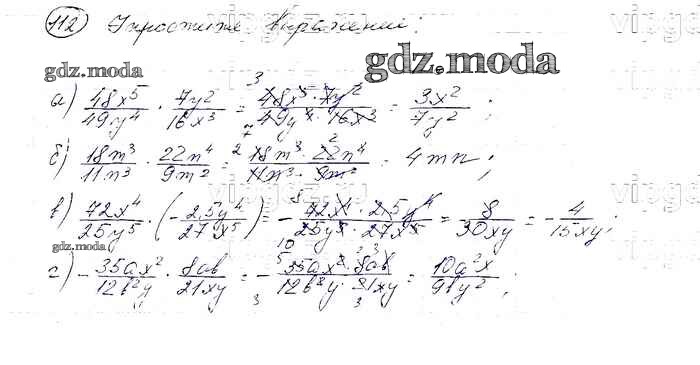 112 Упростите выражения:
gdz.moda
gdz.moda
а) 48x⁵/49y⁴ · 7y²/16x³ = 48x⁵ · 7y²/49y⁴ · 16x³ = 3x²/7y² ;
б) 18m³/11n³ · 22n⁴/9m² = 18m³ · 22n⁴/11n³ · 9m² = 4mn ;
в) 72x⁴/25y⁵ · (- 2,5y⁴/27x⁵) = - 72x⁴ · 2,5y⁴/25y⁵ · 27x⁵ = 8/30xy = - 4/15xy ;
gdz.moda
г) - 35ax²/12b²y · 8ab/21xy = - 35ax² · 8ab/12b²y · 21xy = 10a²x/9by² ;